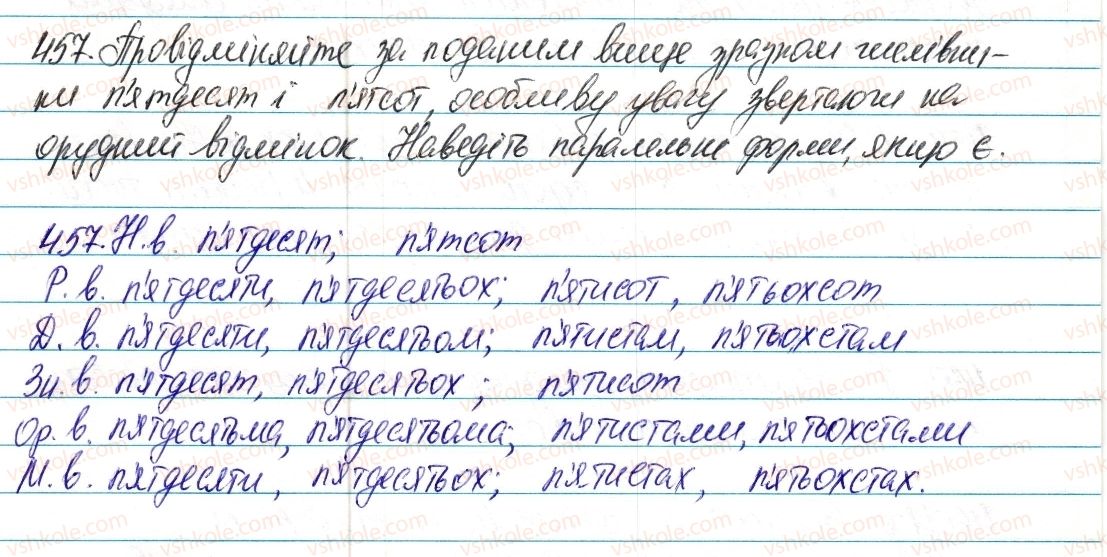 457. Провідміняйте за поданим вище зразком числівни-
ки п'ятдесят і п'ятсот, особливу увагу звертаючи на
орудний відмінок. Наведіть паралельні форми, якщо є.
457. Н.в. п'ятдесят; п'ятсот
Р.в. п'ятдесяти, п'ятдесятьох; п'ятисот, п'ятьохсот
Д.в. п'ятдесяти, п'ятдесятьом; п'ятистам, п'ятьохстам
Зн.в. п'ятдесят, п'ятдесятьох; п'ятисот
Ор.в. п'ятдесятьма, п'ятдесятьома; п'ятистами, п'ятьохстами
М.в. п'ятдесяти, п'ятдесятьох; п'ятистах, п'ятьохстах.